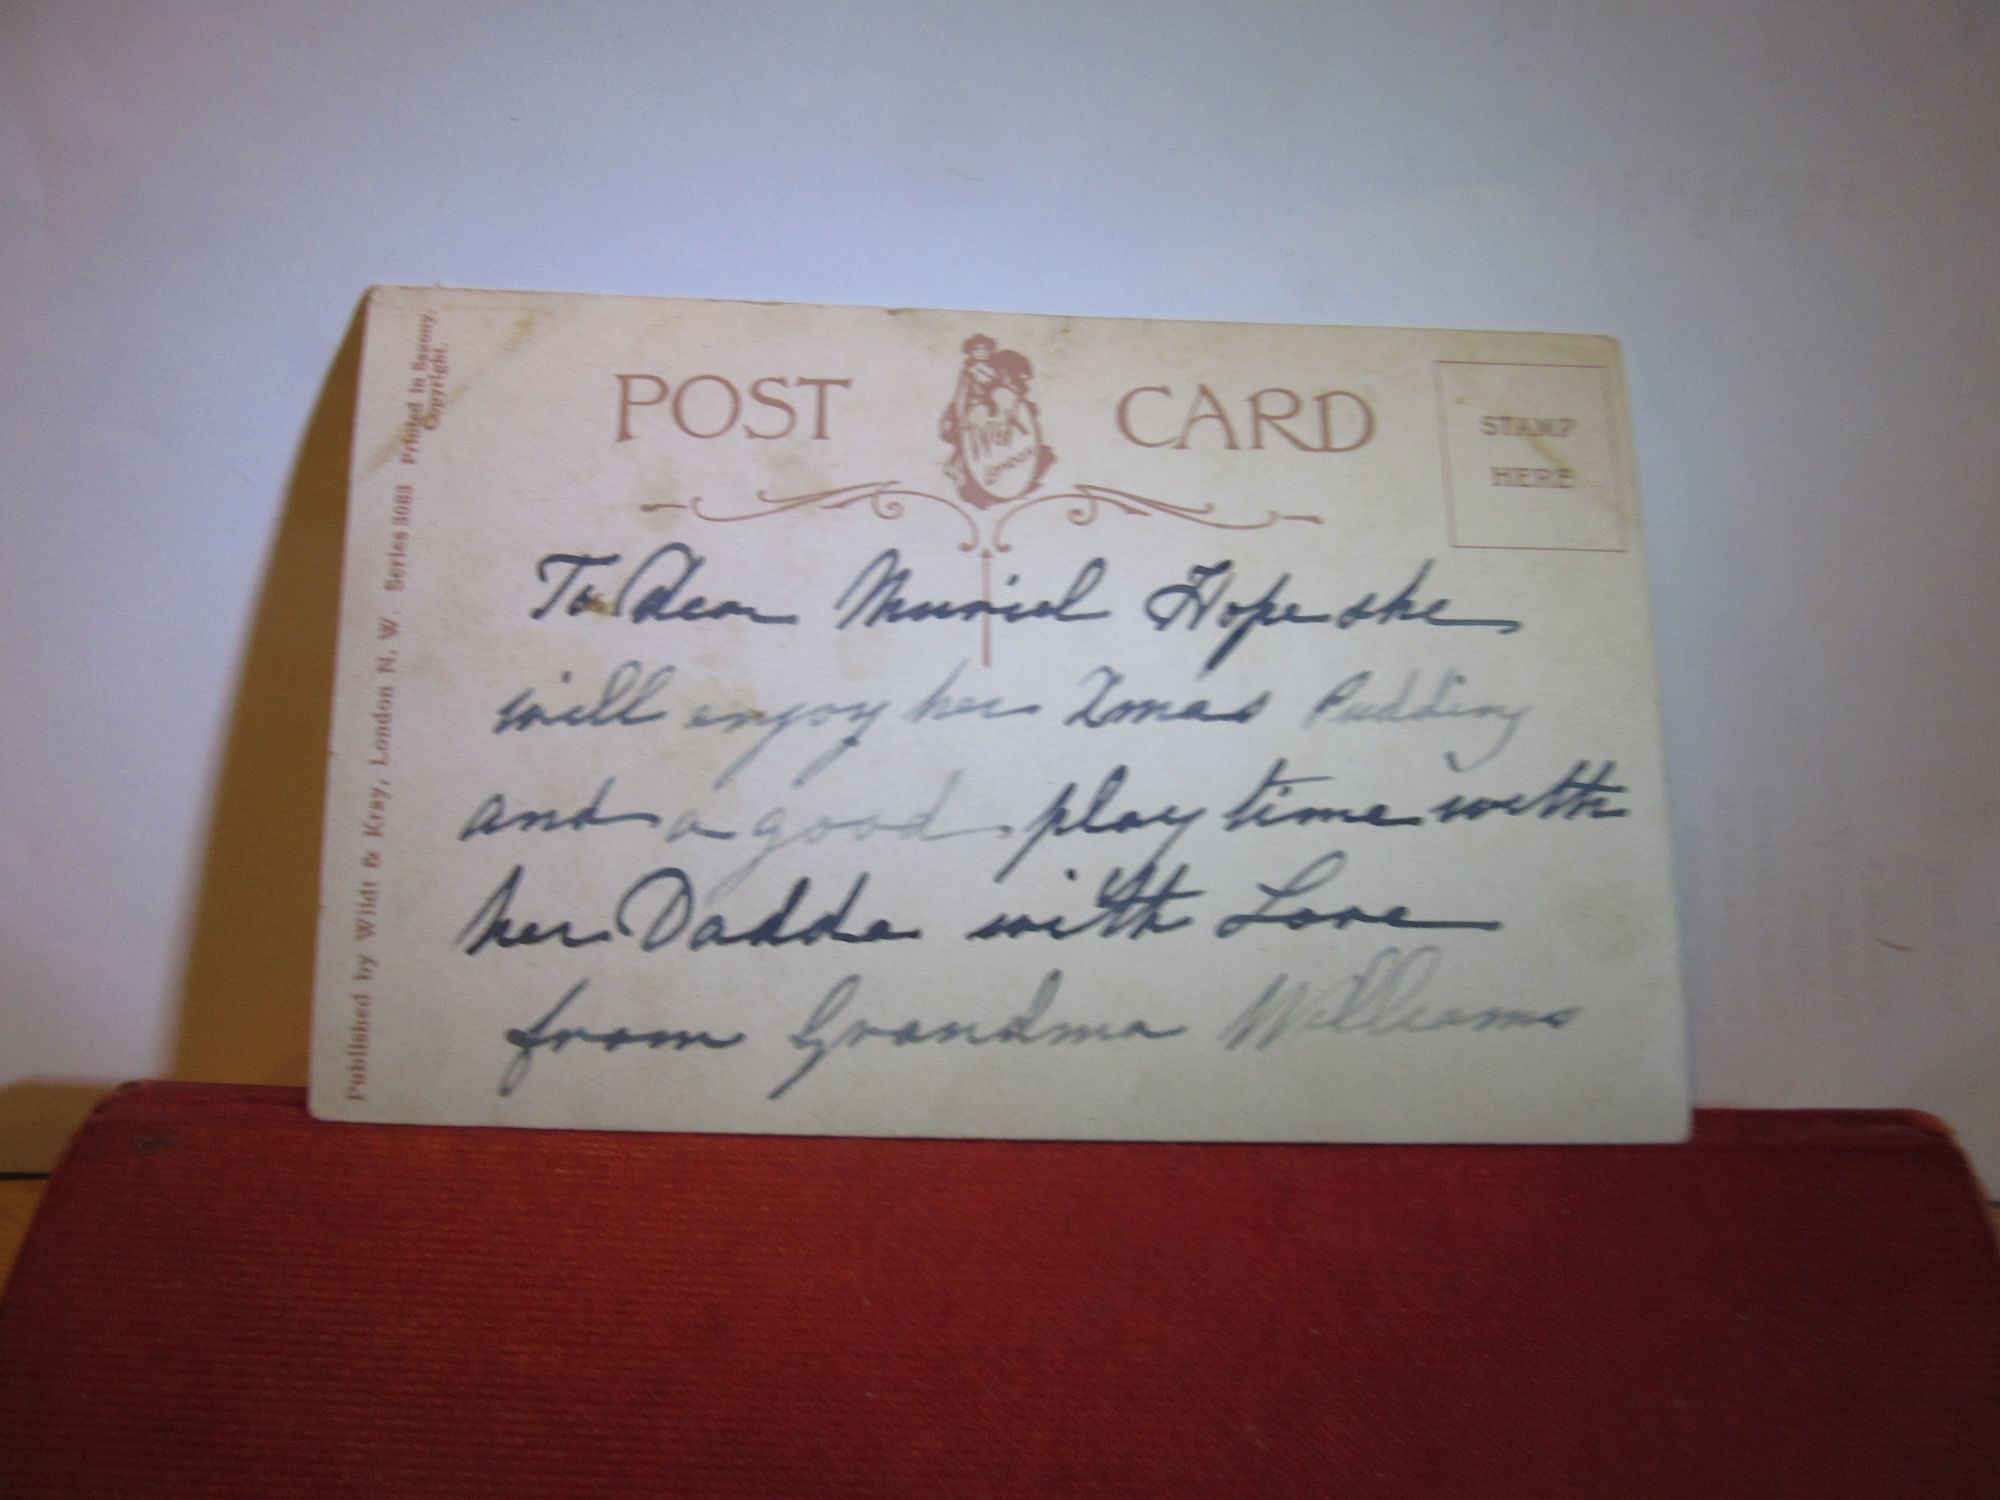 POST CARD
W&K
LONDON
STAMP
HERE
To Dear Muriel Hope she
will enjoy her Xmas Pudding
and a good play time with
her Dadda with Love
from Grandma Williams
Published by Wildt & Kray, London N. W. Series 3083 Printed in Saxony.
Copyright.